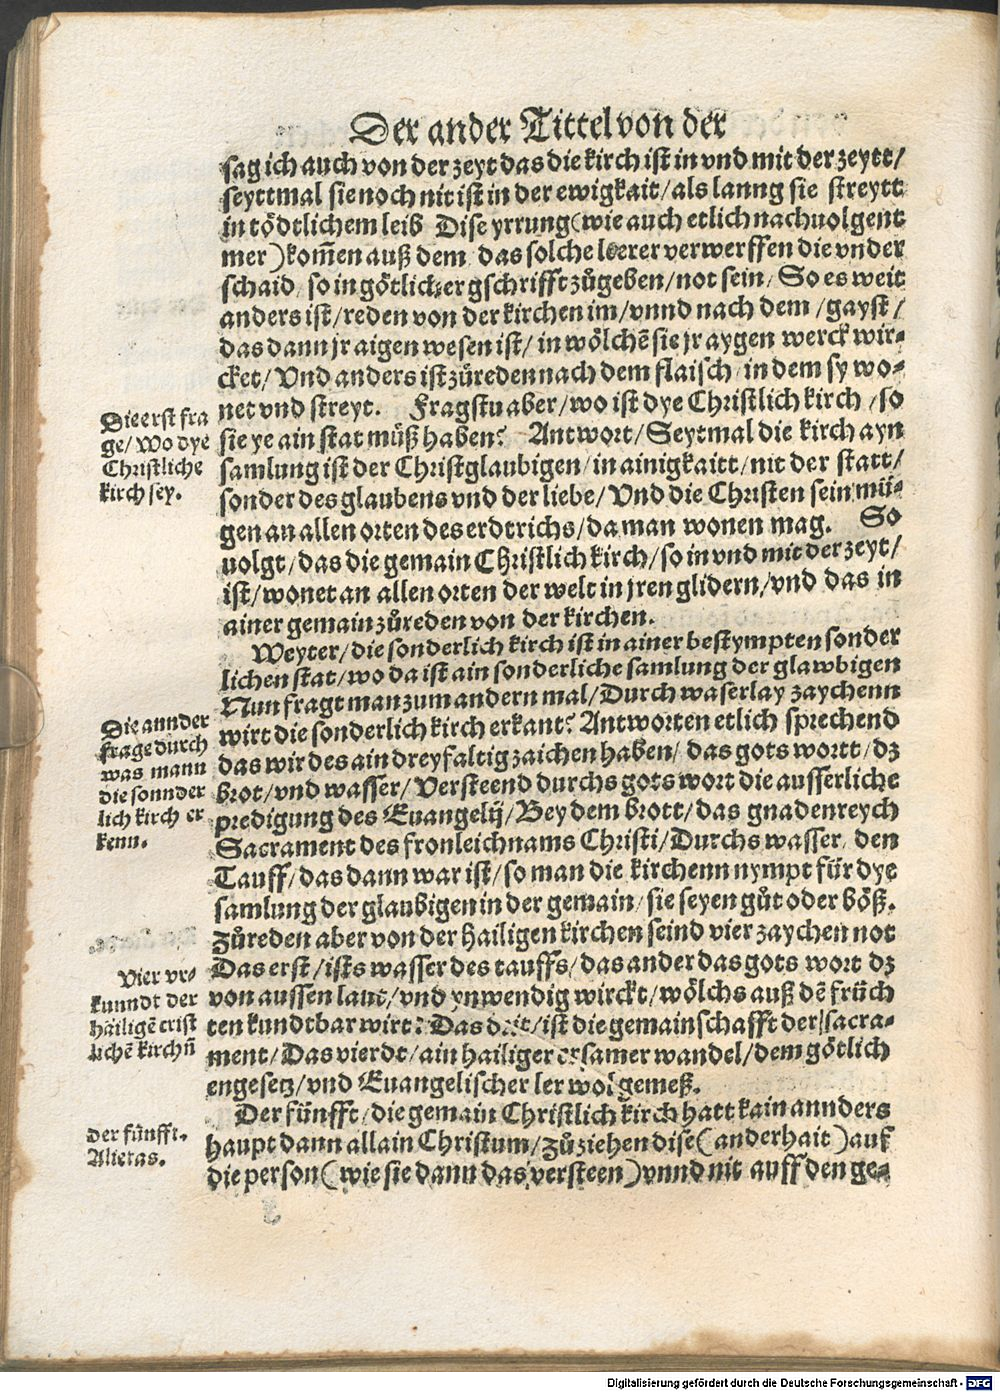 Der ander Tittel von der
sag ich auch von der zeyt das die kirch ist in vnd mit der zeytt/
seyttmal sie noch nit ist in der ewigkait/als lanng sie streytt
in tödtlichem leib Dise yrrung(wie auch etlich nachuolgent
mer)kom̃en auß dem das solche leerer verwerffen die vnder
schaid so in götlicher gschrifft zůgeben/not sein/So es weit
anders ist/reden von der kirchen im/vnnd nach dem/gayst/
das dann jr aigen wesen ist/in wölchẽ sie jr aygen werck wir⸗
cket/Vnd anders ist zůreden nach dem flaisch in dem sy wo⸗
net vnd streyt. Fragstu aber/wo ist dye Christlich kirch/so
sie ye ain stat můß haben? Antwort/Seytmal die kirch ayn
samlung ist der Christglaubigen/in ainigkaitt/nit der statt/
sonder des glaubens vnd der liebe/Vnd die Christen sein mü⸗
gen an allen orten des erdtrichs/da man wonen mag. So
uolgt/das die gemain Christlich kirch/so in vnd mit der zeyt/
ist/wonet an allen orten der welt in jren glidern/vnd das in
ainer gemain zůreden von der kirchen.
Weyter/die sonderlich kirch ist in ainer bestympten sonder
lichen stat/wo da ist ain sonderliche samlung der glawbigen
Nun fragt man zum andern mal/Durch waserlay zaychenn
wirt die sonderlich kirch erkant? Antworten etlich sprechend
das wir des ain dreyfaltig zaichen haben/das gots wortt/dz
brot/vnd wasser/Versteend durchs gots wort die ausserliche
predigung des Euangelij/Bey dem brott/das gnadenreych
Sacrament des fronleichnams Christi/Durchs wasser den
Tauff/das dann war ist/so man die kirchenn nympt für dye
samlung der glaubigen in der gemain/sie seyen gůt oder böß.
Zůreden aber von der hailigen kirchen seind vier zaychen not
Das erst/ists wasser des tauffs/das ander das gots wort dz
von aussen laut/vnd ynwendig wirckt/wölchs auß dẽ früch
ten kundtbar wirt: Das drit/ist die gemainschafft der sacra⸗
ment/Das vierdt/ain hailiger ersamer wandel/dem götlich
en gesetz/vnd Euangelischer ler wol gemeß.
Der fünfft/die gemain Christlich kirch hatt kain annders
haupt dann allain Christum/Zůziehen dise(anderhait)auf
die person(wie sie dann das versteen)vnnd nit auff den ge⸗
Die erst fra
ge/Wo dye
Christliche
kirch sey.
Die annder
frage durch
was mann
die sonnder
lich kirch er
kenn.
Vier vr⸗
kunndt der
hailigẽ crist
lichẽ kirchñ
Der fünfft.
Alietas.
Digitalisierung gefördert durch die Deutsche Forschungsgemeinschaft - DFG